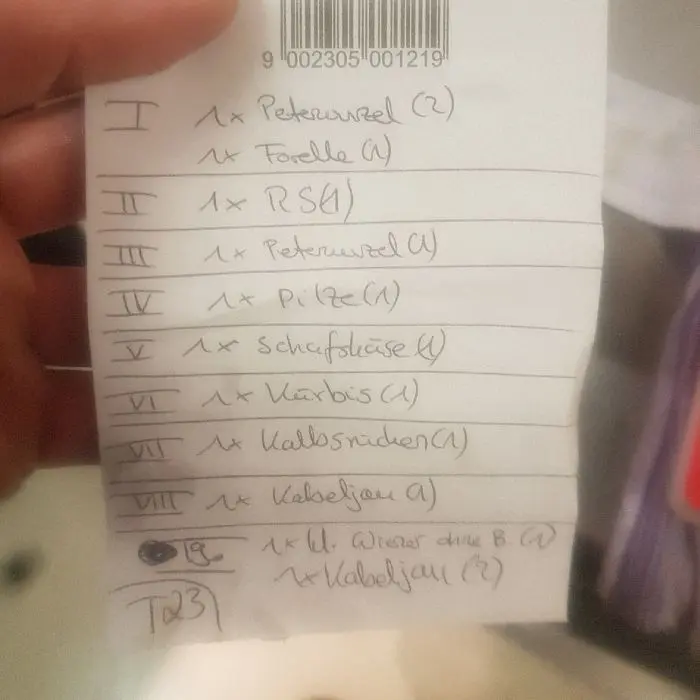 9 002305 001219
I 1x Peterwurzel (2)
1x Forelle (1)
II 1x RS (1)
III 1x Peterwurzel (1)
IV 1x Pilze (1)
V 1x Schafskäse (1)
VI 1x Kürbis (1)
VII 1x Kalbsrücken (1)
VIII 1x Kabeljau (1)
1x kl. Wiener ohne B. (1)
1x Kabeljau (2)
T23